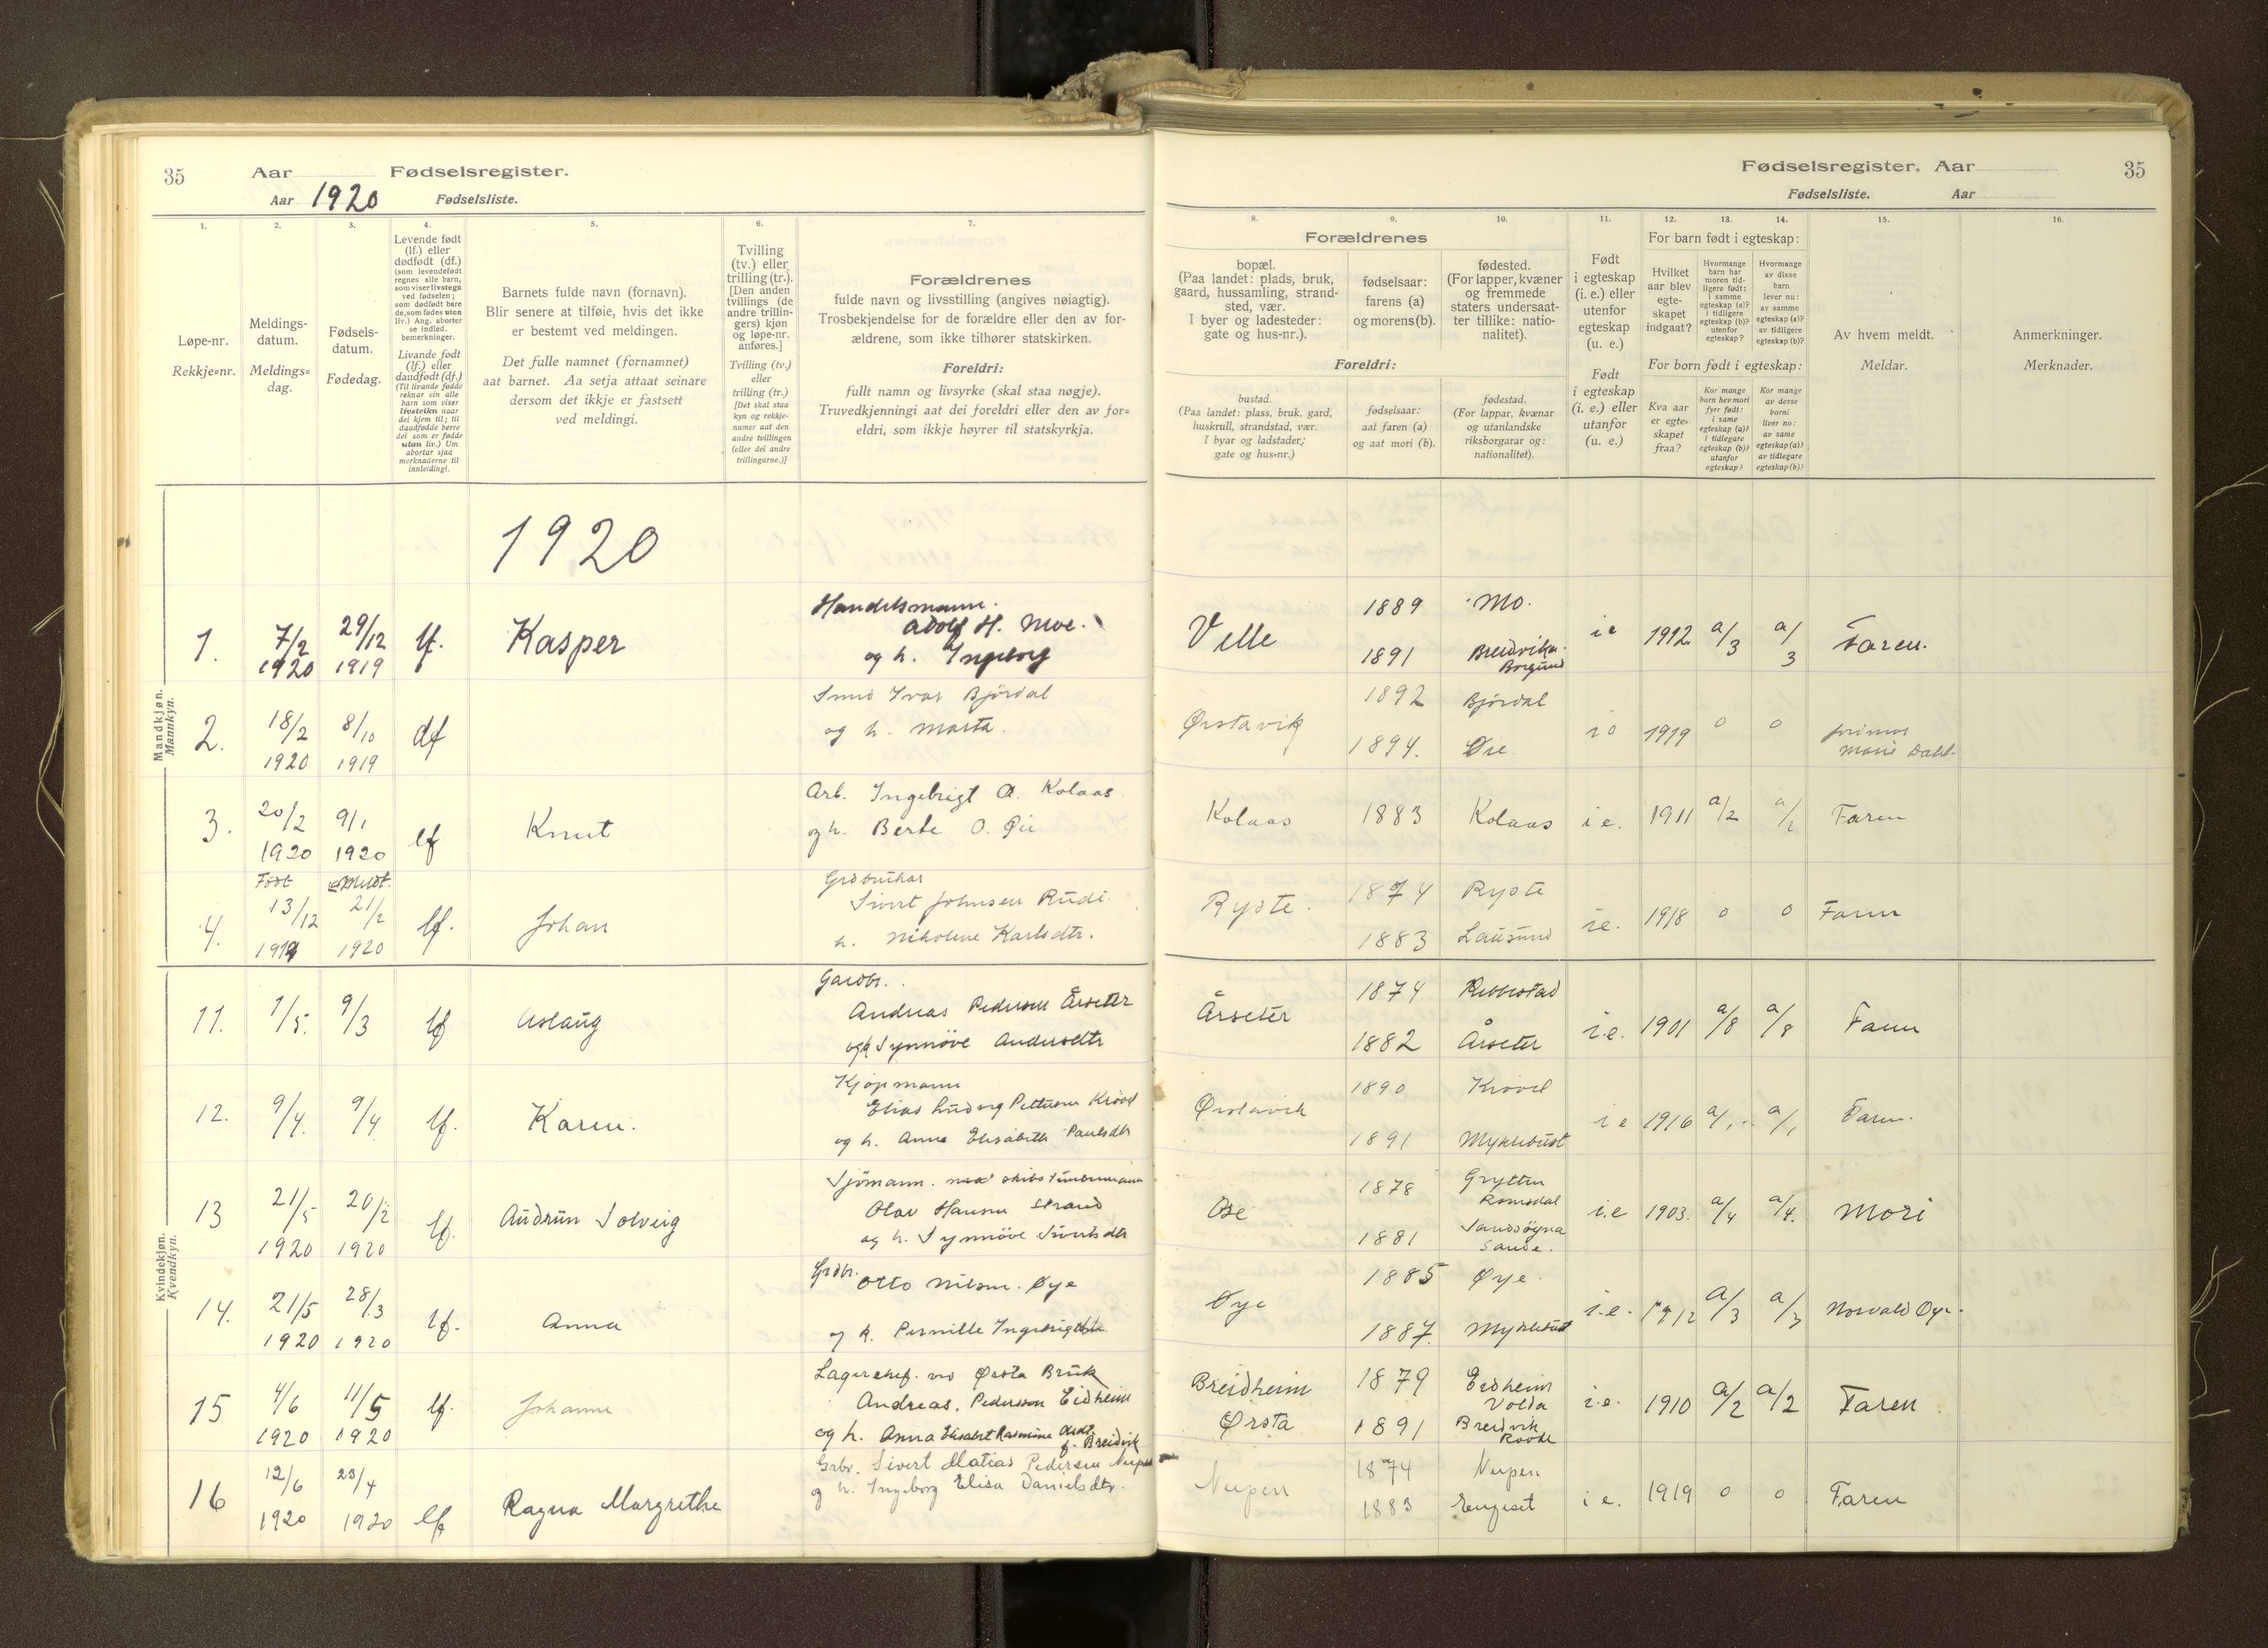 35
Aar
Fødselsregister.
Aar 1920
Fødselsliste.
1.
Løpe-nr.
Rekkje=nr.
2.
Meldings-
datum.
Meldings=
dag.
3.
Fødsels-
datum.
Fødedag.
4.
Levende født
(lf.) eller
dødfødt (df.)
(som levendefødt
regnes alle barn,
som viser livstegn
ved fødselen;
som dødfødt bare
de, som fødes uten
liv.) Ang. aborter
se indled.
bemerkninger.
Livande født
(lf.) eller
daudfødt (df.)
(Til livande fødde
reknar ein alle
barn som viser
livsteikn naar
dei kjem til; til
daudfødde berre
dei som er fødde
utan liv.) Um
abortar sjaa
merknaderne til
innleidingi.
5.
Barnets fulde navn (fornavn).
Blir senere at tilføie, hvis det ikke
er bestemt ved meldingen.
Det fulle namnet (fornamnet)
aat barnet. Aa setja attaat seinare
dersom det ikkje er fastsett
ved meldingi.
6.
Tvilling
(tv.) eller
trilling (tr.).
[Den anden
tvillings (de
andre trillin-
gers) kjøn
og løpe-nr.
anføres.]
Tvilling (tv.)
eller
trilling (tr.)
[Det skal staa
kyn og rekkje-
numer aat den
andre tvillingen
(eller dei andre
trillingarne.)]
7.
Forældrenes
fulde navn og livsstilling (angives nøiagtig).
Trosbekjendelse for de forældre eller den av for-
ældrene, som ikke tilhører statskirken.
Foreldri:
fullt namn og livsyrke (skal staa nøgje).
Truvedkjenningi aat dei foreldri eller den av for=
eldri, som ikkje høyrer til statskyrkja.
Fødselsregister. Aar
35
Fødselsliste. Aar
Forældrenes
8.
bopæl.
(Paa landet: plads, bruk,
gaard, hussamling, strand-
sted, vær.
I byer og ladesteder:
gate og hus-nr.).
9.
fødselsaar:
farens (a)
og morens (b).
10.
fødested.
(For lapper, kvæner
og fremmede
staters undersaat-
ter tillike: natio-
nalitet).
Foreldri:
bustad.
(Paa landet: plass, bruk, gard,
huskrull, strandstad, vær.
I byar og ladstader;
gate og hus=nr.)
fødselsaar:
aat faren (a)
og aat mori (b).
fødestad.
(For lappar, kvænar
og utanlandske
riksborgarar og:
nationalitet).
11.
Født
i egteskap
(i. e.) eller
utenfor
egteskap
(u. e.)
Født
i egteskap
(i. e.) eller
utanfor
(u. e.)
For barn født i egteskap:
12.
Hvilket
aar blev
egte-
skapet
indgaat?
13.
Hvormange
barn har
moren tid-
ligere født:
i samme
egteskap (a)?
i tidligere
egteskap (b)?
utenfor
egteskap?
14.
Hvormange
av disse
barn
lever nu:
av samme
egteskap (a)?
av tidligere
egteskap (b)?
For born født i egteskap:
Kva aar
er egte-
skapet
fraa?
Kor mange
born hev mori
fyrr født:
i same
egteskap (a)?
i tidlegare
egteskap (b)?
utanfor
egteskap?
Kor mange
av desse
borni
liver no:
av same
egteskap (a)?
av tidlegare
egteskap (b)?
15.
Av hvem meldt.
Meldar.
16.
Anmerkninger.
Merknader.
1920
Mandkjøn.
Mannkyn.
1. 7/2 1920 29/12 1919 lf. Kasper
Handelsmann.
Adolf H. Moe.
og h. Ingeborg
Velle 1889 Mo. ie 1912 a/3 a/3 Faren.
1891 Breidvika. Borgund
2. 18/2 1920 8/10 1919 df
Smed Ivar Bjørdal
og h. Marta.
Ørstavik 1892 Bjørdal ie 1919 0 0
1894. Øie Marie Dahl.
3. 20/2 1920 9/1 1920 lf Knut
Arb. Ingebrigt O. Kolaas
og h. Berte O.
Kolaas 1883 Kolaas i e. 1911 a/2 a/2 Faren
Født
4. 13/12 1919 21/2 1920 lf. Johan
Grdbrukar
Sivert Johnsen
h. Nikoline Karlsdtr.
Ryste. 1874 Ryste ie. 1918 0 0 Faren
1883
Kvindekjøn.
Kvendkyn.
11. 1/5. 9/3 lf Aslaug
Gardbr.
Andreas Pedersen Årseter
og h Synnöve Andersdtr
Årseter 1874 Rebbestad i.e. 1901 a/8 a/8 Faren
1882 Årseter
12. 9/4. 9/4 lf. Karen.
Kjøpmann
Elias Ludvig Pettersen
og h. Anna Elisabeth Paulsdtr
Ørstavik 1890 i e 1916 a/1 a/1 Faren.
1891 Myklebust
13 21/5 1920 20/2 1920 lf. Audrun Solveig
Sjömann.
Olav Hansen Strand
og h. Synnöve Sivertsdtr
Ose 1878 Grytten Romsdal i.e 1903. a/4 a/4. Mori
1881 Sande.
14. 21/5 1920 28/3 1920 lf. Anna
Grdbr. Otto Nilsen. Øye
og h. Pernille Ingebrigtsdtr.
Øye 1885 Øye. i.e. 1912 a/3 a/3 Norvald Øye.
1887. Myklebust
15 4/6 1920 11/5 1920 lf. Johanne
Lagerchef. ved Ørsta Bruk
Andreas. Pedersen Eidheim
og h. Anna Elisabet Rasmine
f. Breidvik
Breidheim Ørsta 1879 Eidheim Volda i.e. 1910 a/2 a/2 Faren
1891 Breidvik
16 12/6 1920 23/4 1920 lf Ragna Margrethe
Grbr. Sivert Matias Pedersen Nupen
og h. Ingeborg Elisa Danielsdtr.
Nupen 1874 Nupen i e. 1919 0 0 Faren
1883 Engeset